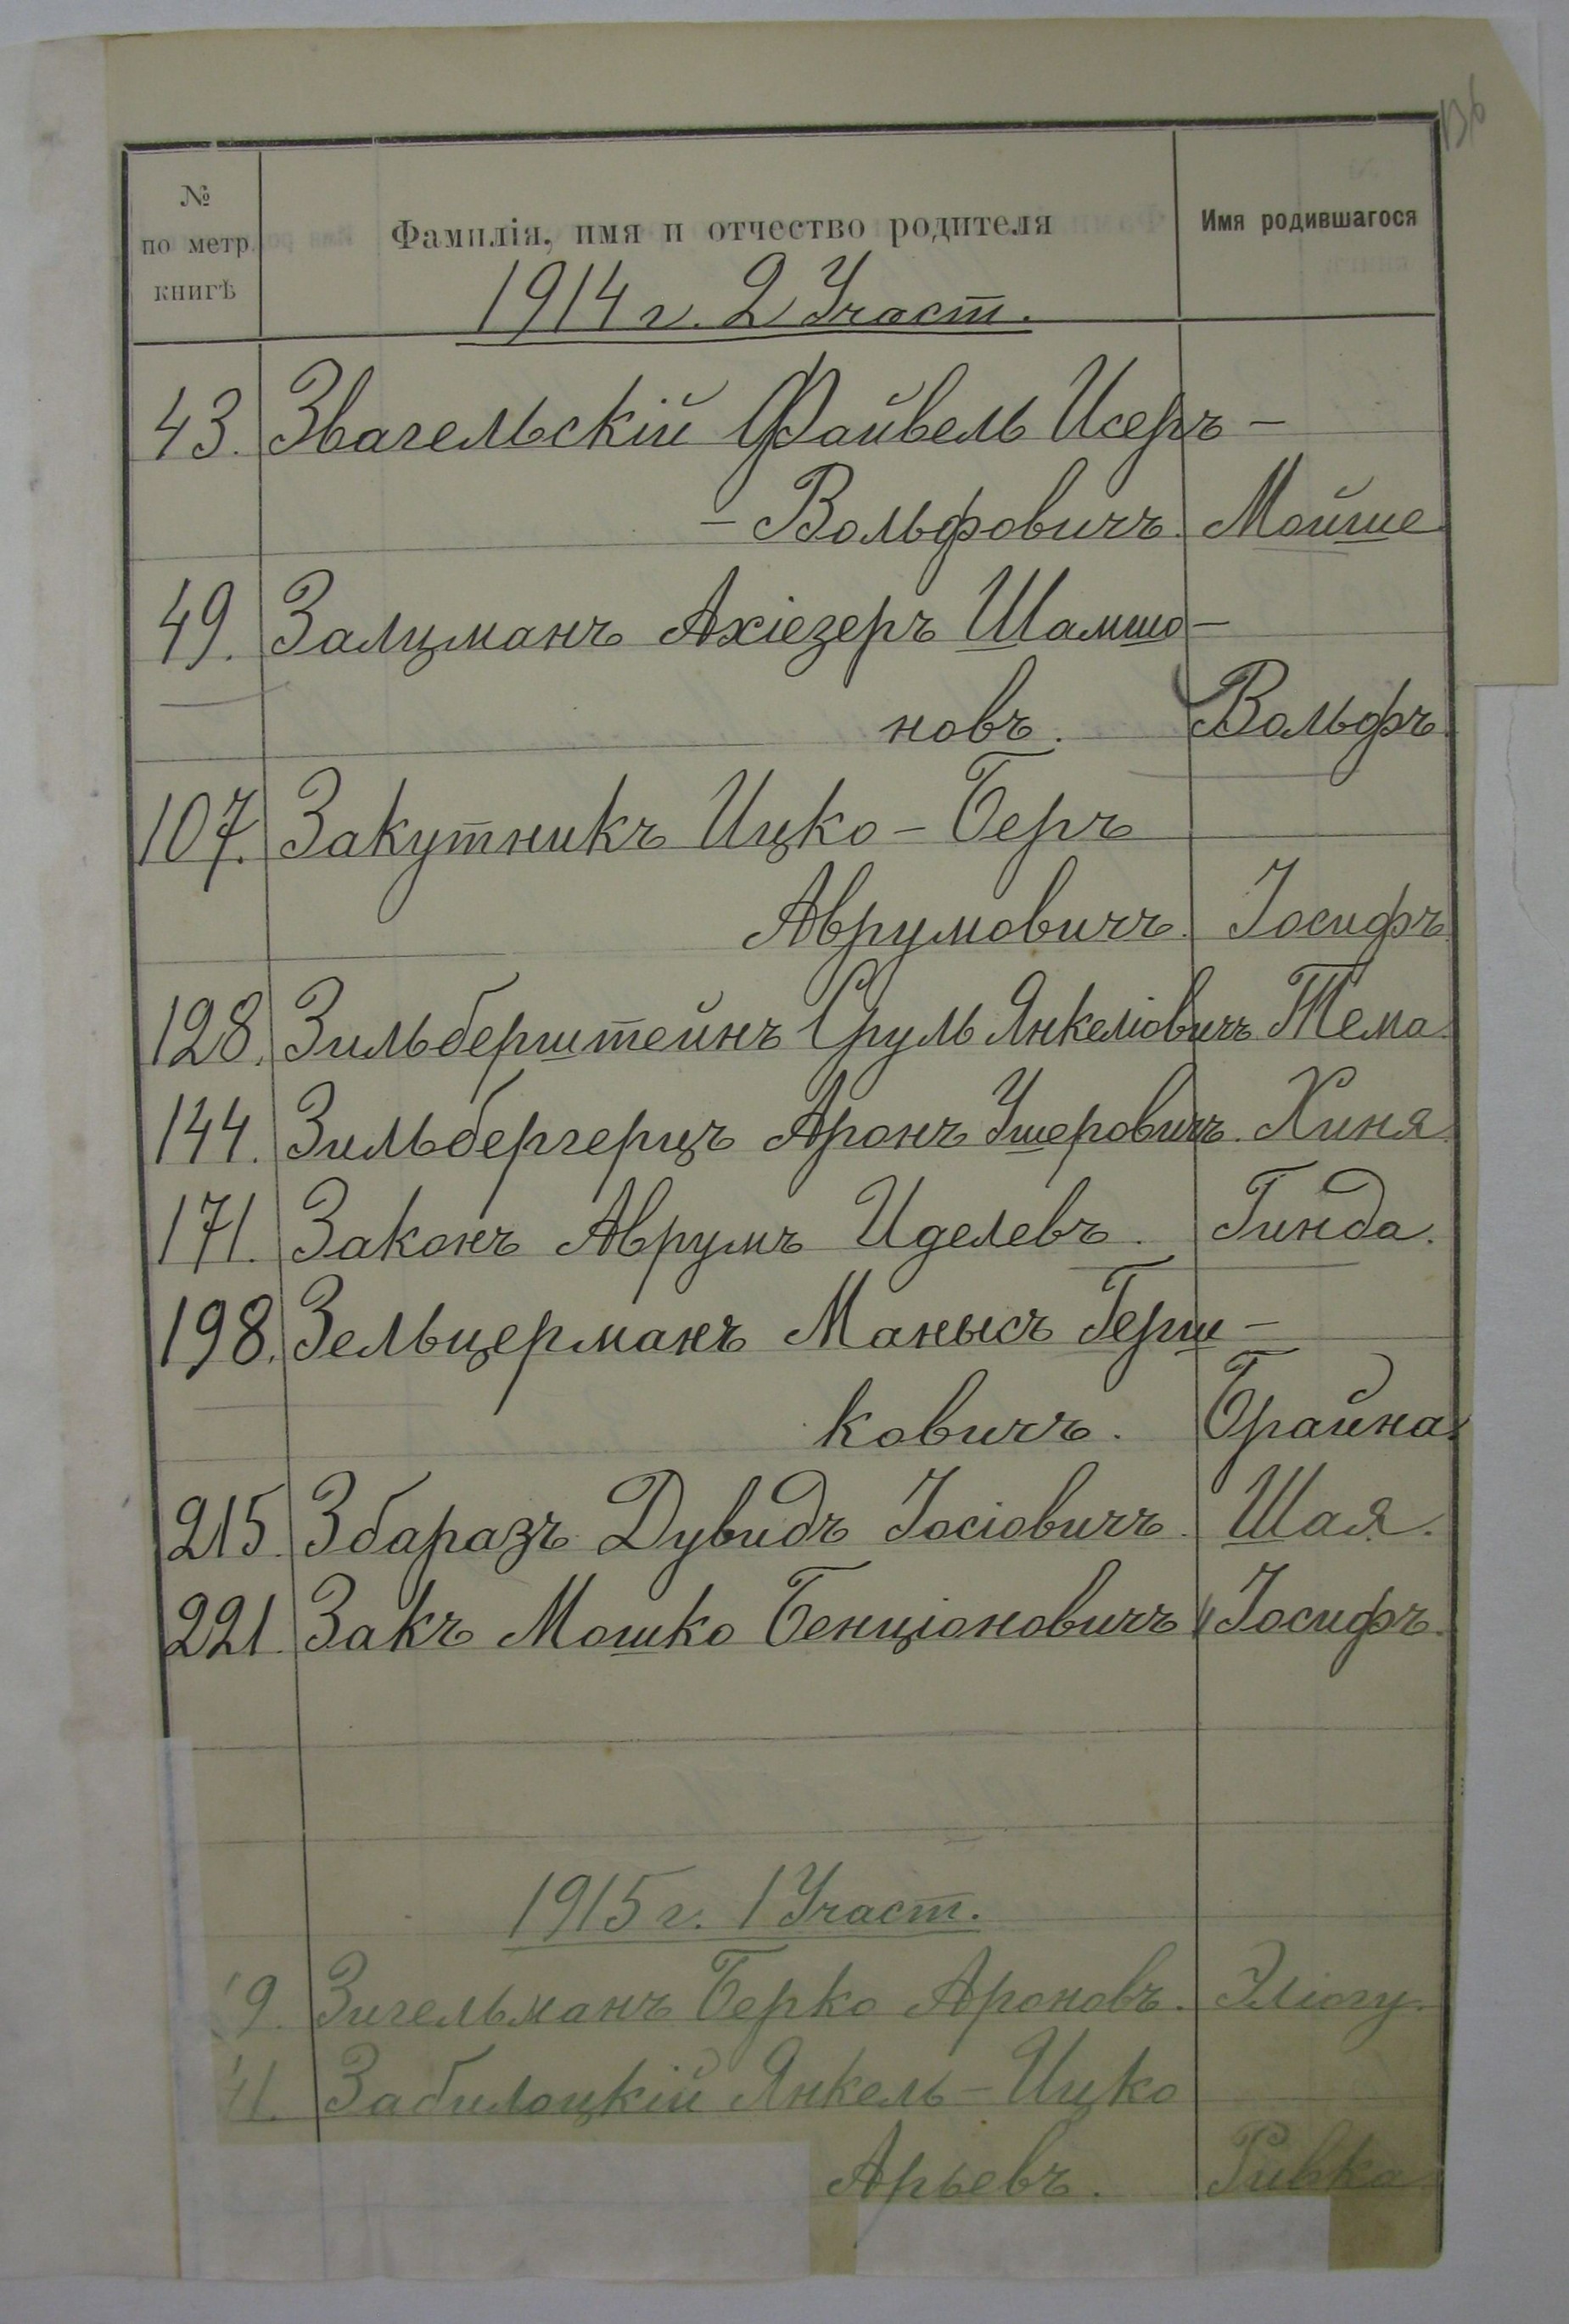 136
№
по метр.
книгѣ
Фамилія, имя и отчество родителя
Имя родившагося
1914 г. 2 Участ.
43. Звагельскій Файвель Исеръ-
-Вольфовичъ. Мойше
49. Залцманъ Ахіезеръ Шамшо-
новъ. Вольфъ.
107. Закутникъ Ицко-Беръ
Аврумовичъ. Іосифъ.
128. Зильберштейнъ Сруль Янкеліовичъ Тема.
144. Зильбергерцъ Аронъ Ушеровичъ. Хиня.
171. Законъ Аврумъ Иделевъ. Гинда.
198. Зельцерманъ Манысъ Герш-
ковичъ. Брайна.
215. Збаразъ Дувидъ Іосіовичъ. Шая.
221. Закъ Мошко Бенціоновичъ Іосифъ.
1915 г. 1 Участ.
9. Зигельманъ Берко Ароновъ. Эліогу.
11. Забилоцкій Янкель-Ицко
Арьевъ. Ривка